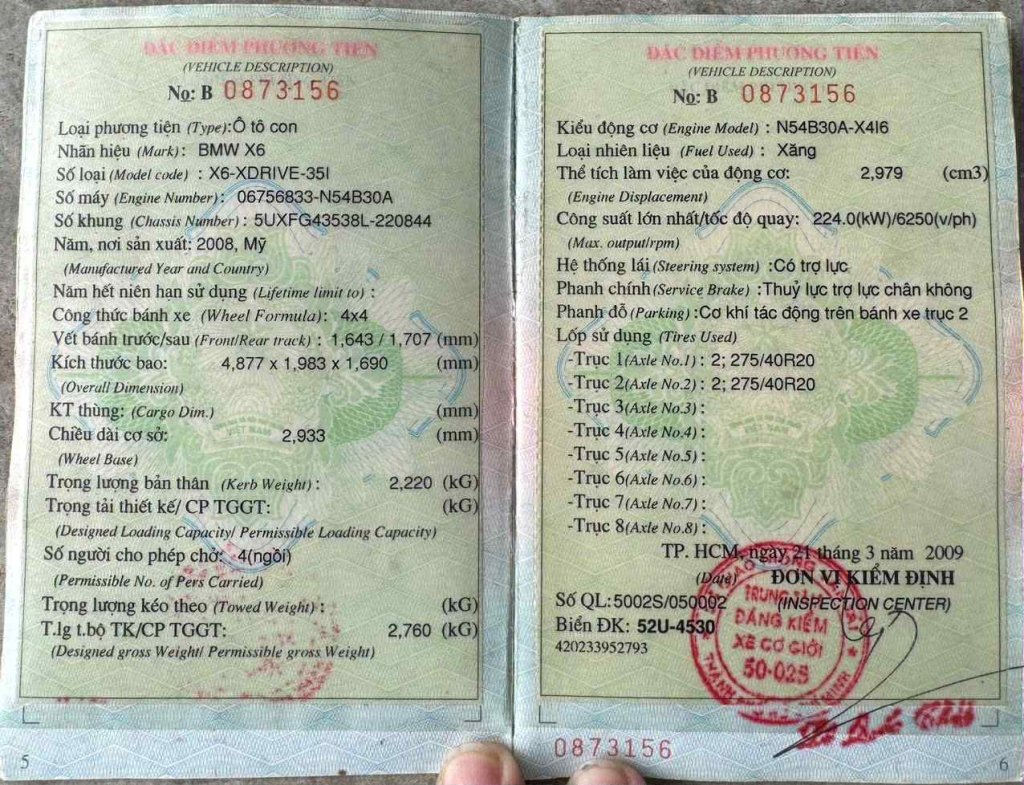 ĐẶC ĐIỂM PHƯƠNG TIỆN
(VEHICLE DESCRIPTION)
No: B 0873156
Loại phương tiện (Type):Ô tô con
Nhãn hiệu (Mark): BMW X6
Số loại (Model code) : X6-XDRIVE-35I
Số máy (Engine Number): 06756833-N54B30A
Số khung (Chassis Number) : 5UXFG43538L-220844
Năm, nơi sản xuất: 2008, Mỹ
(Manufactured Year and Country)
Năm hết niên hạn sử dụng (Lifetime limit to) :
Công thức bánh xe (Wheel Formula): 4x4
Vết bánh trước/sau (Front/Rear track) : 1,643 / 1,707 (mm)
Kích thước bao: 4,877 x 1,983 x 1,690 (mm)
(Overall Dimension)
KT thùng: (Cargo Dim.) (mm)
Chiều dài cơ sở: 2,933 (mm)
(Wheel Base)
Trọng lượng bản thân (Kerb Weight) : 2,220 (kG)
Trọng tải thiết kế/ CP TGGT: (kG)
(Designed Loading Capacity/ Permissible Loading Capacity)
Số người cho phép chở: 4(ngồi)
(Permissible No. of Pers Carried)
Trọng lượng kéo theo (Towed Weight) : (kG)
T.lg t.bộ TK/CP TGGT: 2,760 (kG)
(Designed gross Weight/ Permissible gross Weight)
VIỆT NAM
5
ĐẶC ĐIỂM PHƯƠNG TIỆN
(VEHICLE DESCRIPTION)
No: B 0873156
Kiểu động cơ (Engine Model) : N54B30A-X4I6
Loại nhiên liệu (Fuel Used) : Xăng
Thể tích làm việc của động cơ: 2,979 (cm3)
(Engine Displacement)
Công suất lớn nhất/tốc độ quay: 224.0(kW)/6250(v/ph)
(Max. output/rpm)
Hệ thống lái (Steering system) :Có trợ lực
Phanh chính (Service Brake) :Thuỷ lực trợ lực chân không
Phanh đỗ (Parking) :Cơ khí tác động trên bánh xe trục 2
Lốp sử dụng (Tires Used)
-Trục 1(Axle No.1) : 2; 275/40R20
-Trục 2(Axle No.2) : 2; 275/40R20
-Trục 3(Axle No.3) :
-Trục 4(Axle No.4) :
-Trục 5(Axle No.5) :
-Trục 6(Axle No.6) :
-Trục 7(Axle No.7) :
-Trục 8(Axle No.8) :
VIỆT NAM
TP. HCM, ngày 21 tháng 3 năm 2009
(Date) ĐƠN VỊ KIỂM ĐỊNH
Số QL:5002S/050002 (INSPECTION CENTER)
Biển ĐK: 52U-4530
420233952793
TRUNG TÂM
ĐĂNG KIỂM
XE CƠ GIỚI
50-02S
0873156
6